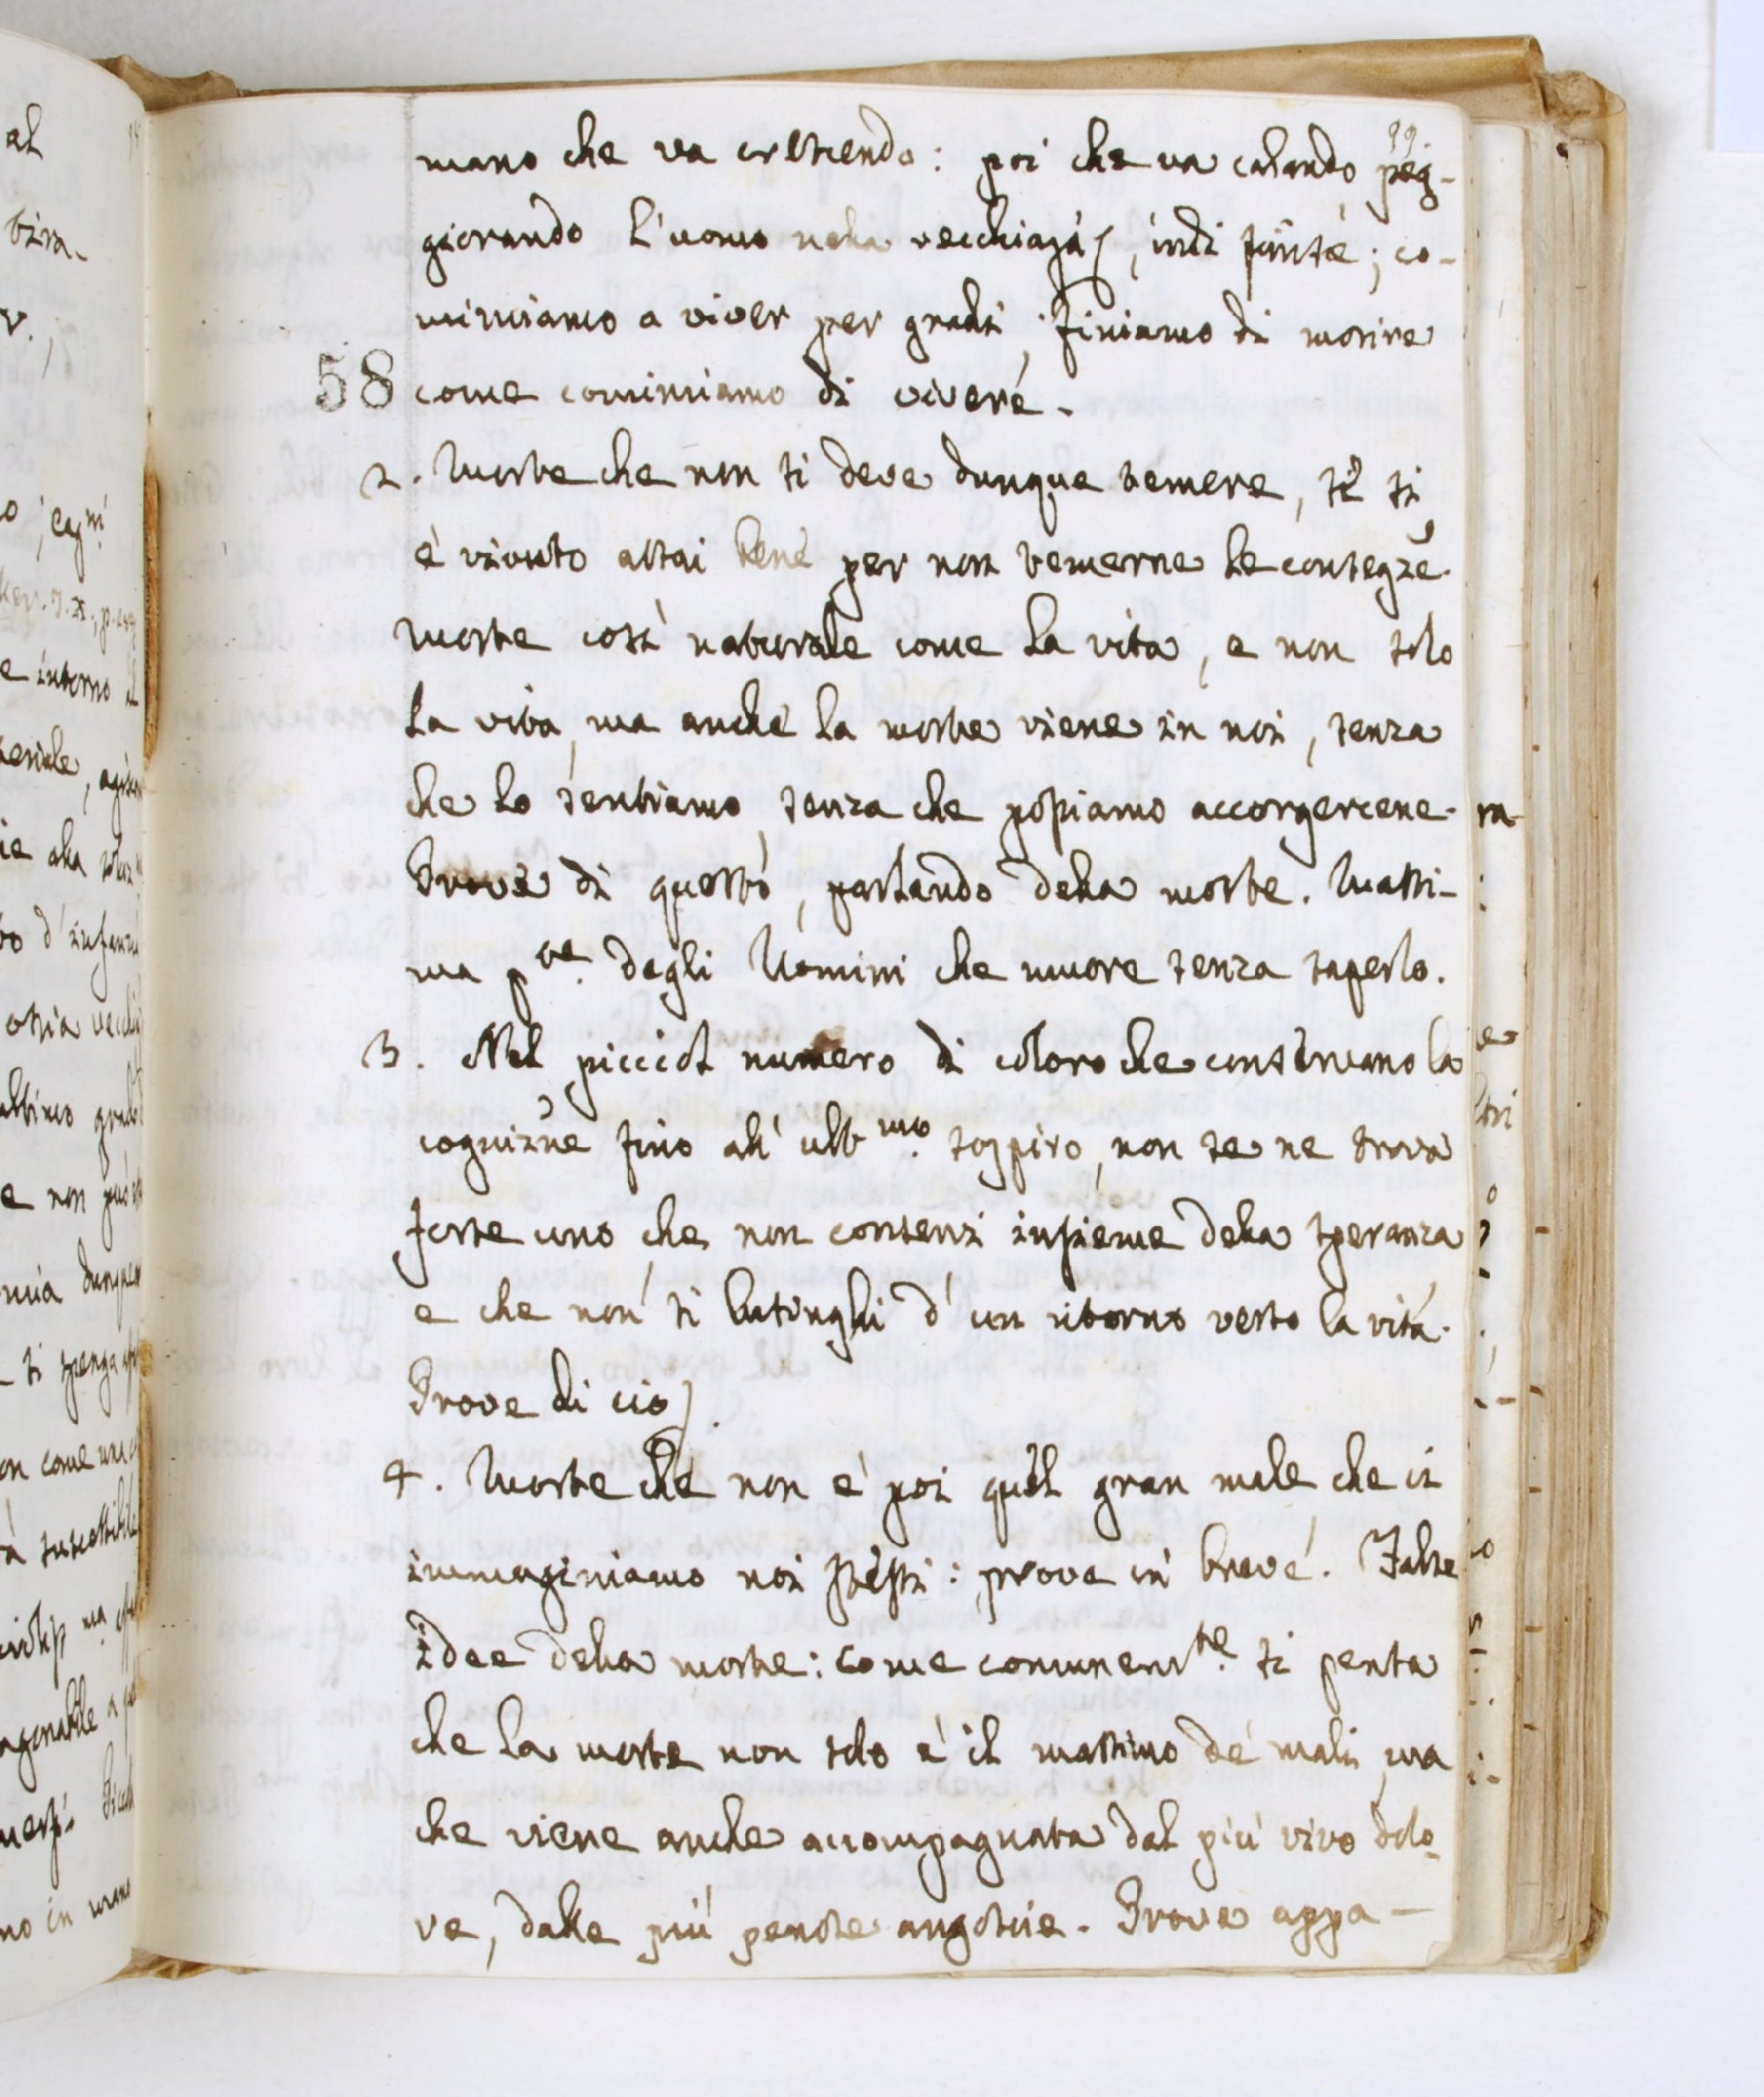 99
mano che va crescendo: poi che va calando, peg-
giorando l'uomo nella vecchiaja, indi
cominciamo a viver per gradi, finiamo di morire
58 come cominciamo di vivere.
2. Morte che non si deve dunque temere, se si
è vivuto assai bene per non temerne le consegze.
Morte così naturale come la vita, e non solo
la vita, ma anche la morte viene in noi, senza
che lo sentiamo, senza che possiamo accorgercene.
Prove di questo, parlando della morte. Massi-
ma pte. degli Uomini che muore senza saperlo.
3. Nel picciol numero di coloro che conservano la
cognizne fino all' ultmo. sospiro, non se ne trova
forse uno che non conservi insieme della speranza
e che non si lusinghi d' un ritorno verso la vita.
Prove di ciò.
4. Morte che non è poi quel gran male che ci
immaginiamo noi stessi: prove in breve. False
idee della morte: come comunemte. si pensa
che la morte non solo è il massimo de' mali, ma
che viene anche accompagnata dal più vivo dolo-
re, dalle più penose angoscie. Prove appa-